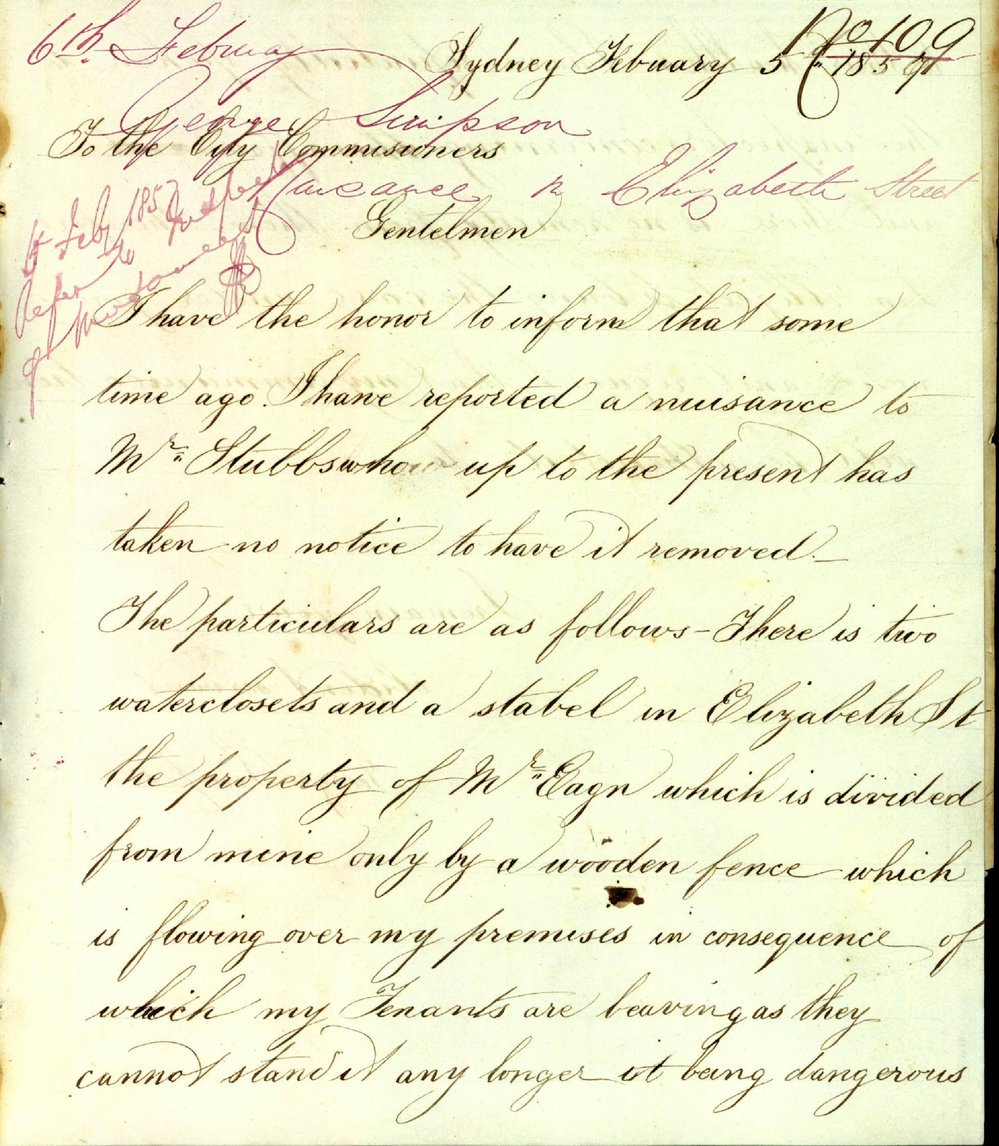 No 109
6th. Februay
Sydney Febuary 5th. 185
George Simpson
To the City Commisioners
Nuisance in Elizabeth Street
Gentelmen
6 Feby 1857
Refer to Inspector
of Nuisances
I have the honor to inform that some
time ago. I have reported a nuisance to
Mr. Stubbs whom up to the present has
taken no notice to have it removed._
The particulars are as follows - There is two
waterclosets and a stabel in Elizabeth St
the property of Mr. Eagn which is divided
from mine only by a wooden fence which
is flowing over my premises in consequence of
which my Tenants are leaving as they
cannot stand it any longer it being dangerous